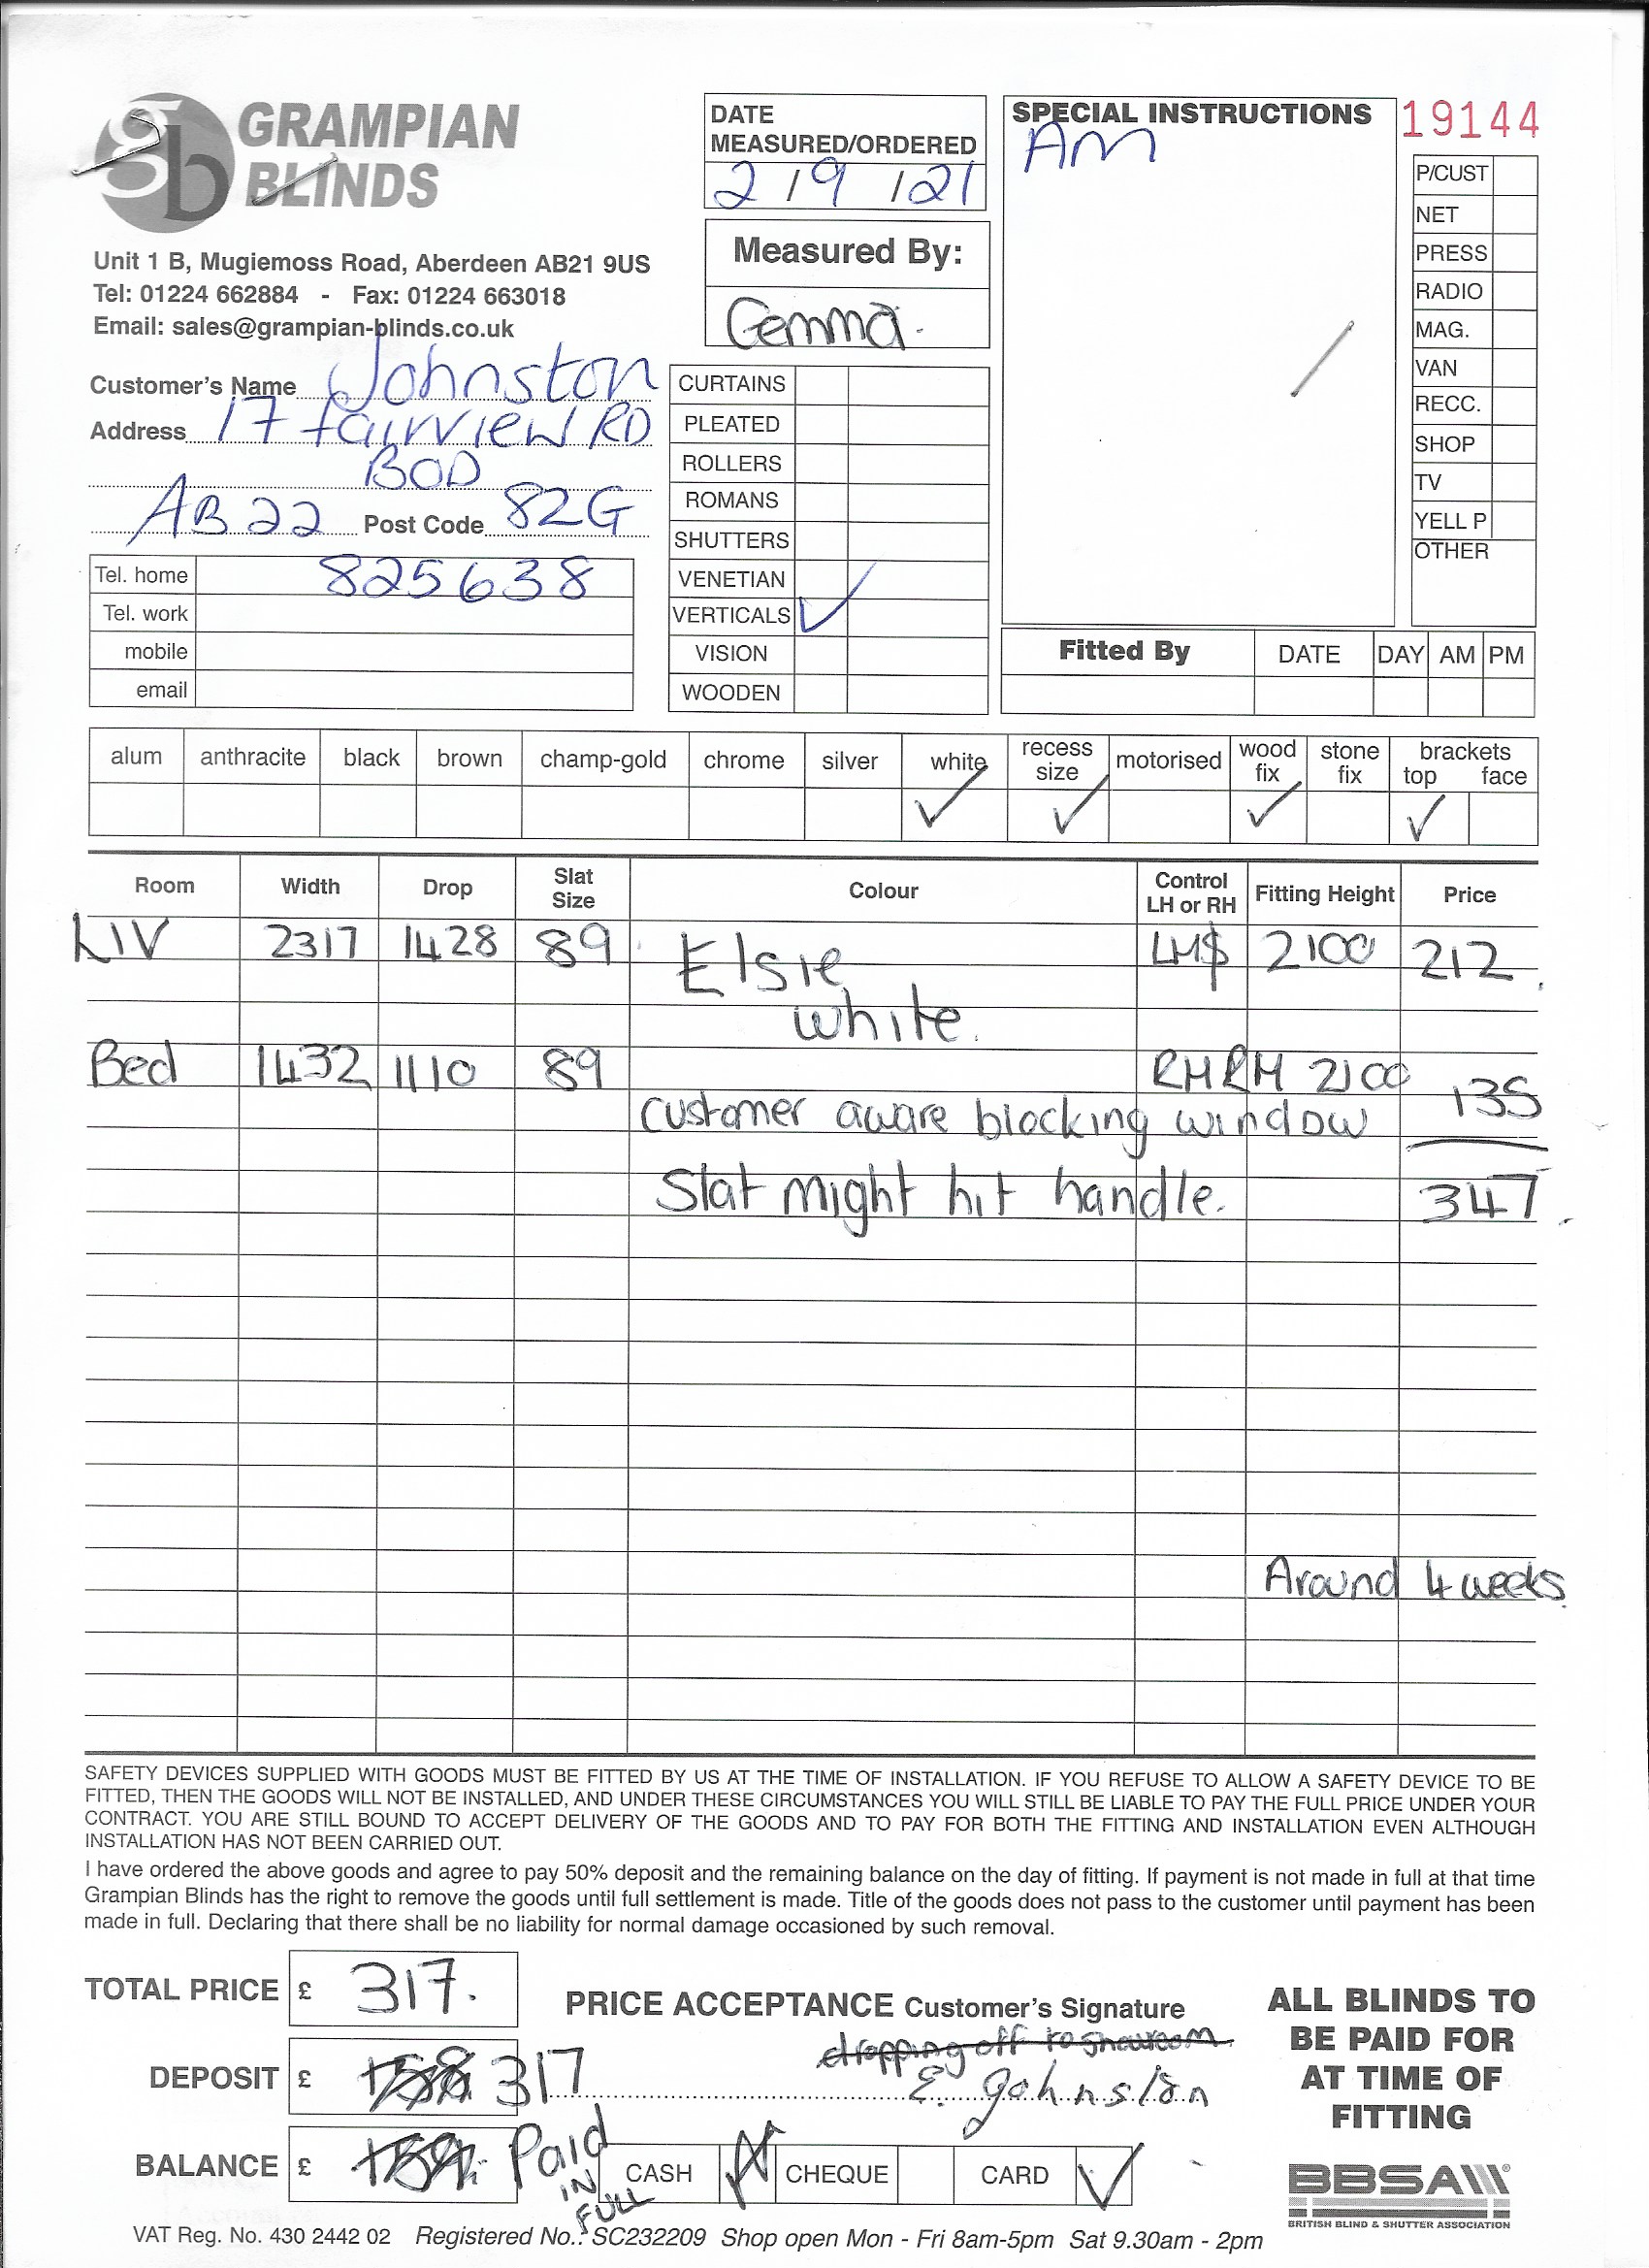 gb GRAMPIAN BLINDS
Unit 1 B, Mugiemoss Road, Aberdeen AB21 9US
Tel: 01224 662884 - Fax: 01224 663018
Email: sales@grampian-blinds.co.uk
Customer's Name Johnston
Address 17 fairview RD
BOD
AB22 Post Code 82G
Tel. home 825638
Tel. work
mobile
email
DATE
MEASURED/ORDERED
2/9/21
Measured By:
Gemma.
CURTAINS
PLEATED
ROLLERS
ROMANS
SHUTTERS
VENETIAN
VERTICALS ✓
VISION
WOODEN
SPECIAL INSTRUCTIONS
AM
19144
P/CUST
NET
PRESS
RADIO
MAG.
VAN
RECC.
SHOP
TV
YELL P
OTHER
Fitted By DATE DAY AM PM
alum anthracite black brown champ-gold chrome silver white recess size motorised wood fix stone fix brackets top face
✓ ✓ ✓ ✓
Room Width Drop Slat Size Colour Control LH or RH Fitting Height Price
LIV 2317 1428 89 Elsie 2100 212
white.
Bed 1432 1110 89 RHRH 2100 135
customer aware blocking window
Slat might hit handle. 347
Around 4 weeks
SAFETY DEVICES SUPPLIED WITH GOODS MUST BE FITTED BY US AT THE TIME OF INSTALLATION. IF YOU REFUSE TO ALLOW A SAFETY DEVICE TO BE
FITTED, THEN THE GOODS WILL NOT BE INSTALLED, AND UNDER THESE CIRCUMSTANCES YOU WILL STILL BE LIABLE TO PAY THE FULL PRICE UNDER YOUR
CONTRACT. YOU ARE STILL BOUND TO ACCEPT DELIVERY OF THE GOODS AND TO PAY FOR BOTH THE FITTING AND INSTALLATION EVEN ALTHOUGH
INSTALLATION HAS NOT BEEN CARRIED OUT.
I have ordered the above goods and agree to pay 50% deposit and the remaining balance on the day of fitting. If payment is not made in full at that time
Grampian Blinds has the right to remove the goods until full settlement is made. Title of the goods does not pass to the customer until payment has been
made in full. Declaring that there shall be no liability for normal damage occasioned by such removal.
TOTAL PRICE £ 317.
DEPOSIT £ 158 317
BALANCE £ 159. Paid IN FULL
PRICE ACCEPTANCE Customer's Signature
dropping off to showroom
E. Johnston
CASH CHEQUE CARD ✓
ALL BLINDS TO
BE PAID FOR
AT TIME OF
FITTING
BBSA
BRITISH BLIND & SHUTTER ASSOCIATION
VAT Reg. No. 430 2442 02 Registered No.: SC232209 Shop open Mon - Fri 8am-5pm Sat 9.30am - 2pm